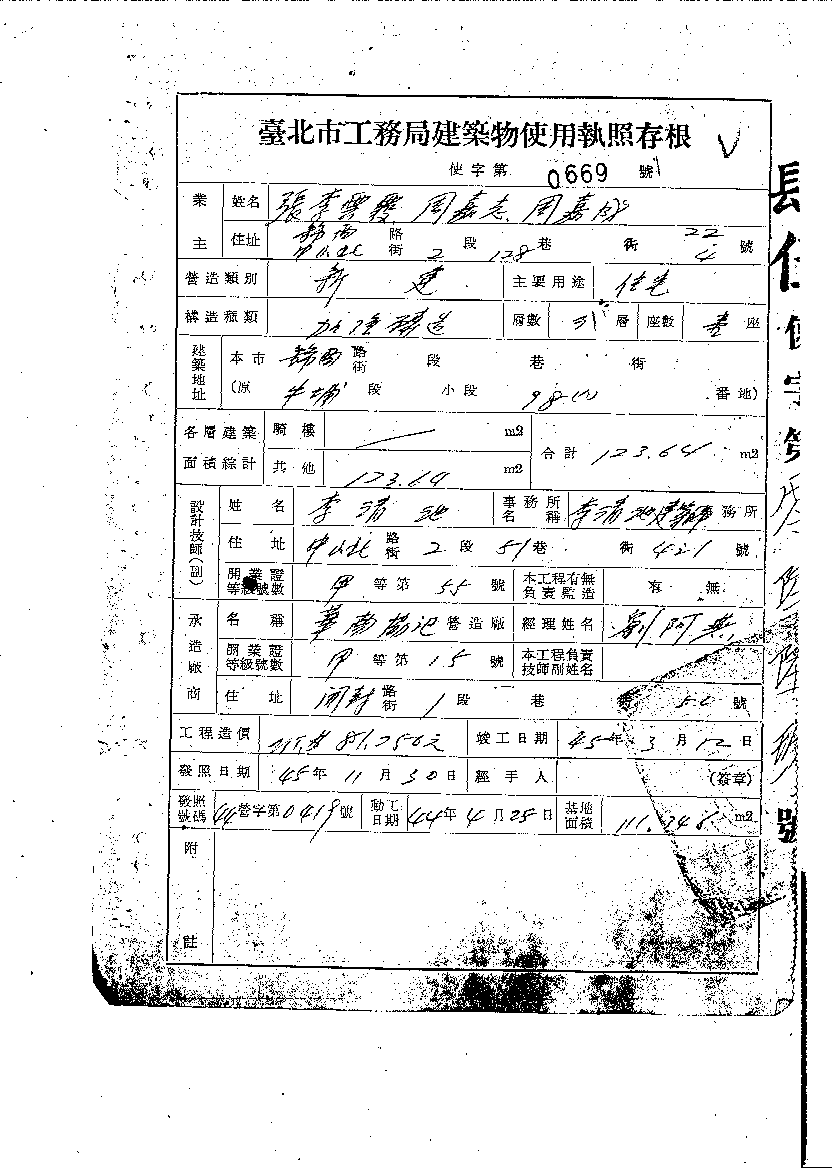 臺北市工務局建築物使用執照存根
使字第 0669 號
業主 姓名 張李雲霞 周嘉志 周嘉成
住址 路街 2 段 128 巷 街 22 4 號
營造類別 新建 主要用途 住宅
構造種類 加強磚造 層數 層 座數 壹 座
建築地址 本市 錦西 路街 段 巷 街
(原 牛埔 段 小段 98 番地)
各層建築面積綜計 騎樓 m2 合計 123.64 m2
其他 123.64 m2
設計技師(副) 姓名 李清池 事務所名稱 李清池建築師務所
住址 中山北 路街 2 段 51 巷 街 421 號
開業證等級號數 甲 等第 55 號 本工程有無負責監造 有 無
承造廠商 名稱 華南 營造廠 經理姓名 劉阿
開業證等級號數 甲 等第 15 號 本工程負責技師副姓名
住址 開封 路街 1 段 巷 街 50 號
工程造價 81,250元 竣工日期 45年 3 月 12 日
發照日期 45年 11 月 30 日 經手人 (簽章)
發照號碼 44營字第0419號 動工日期 44年 4 月 28 日 基地面積 m2
附註
使字第
號